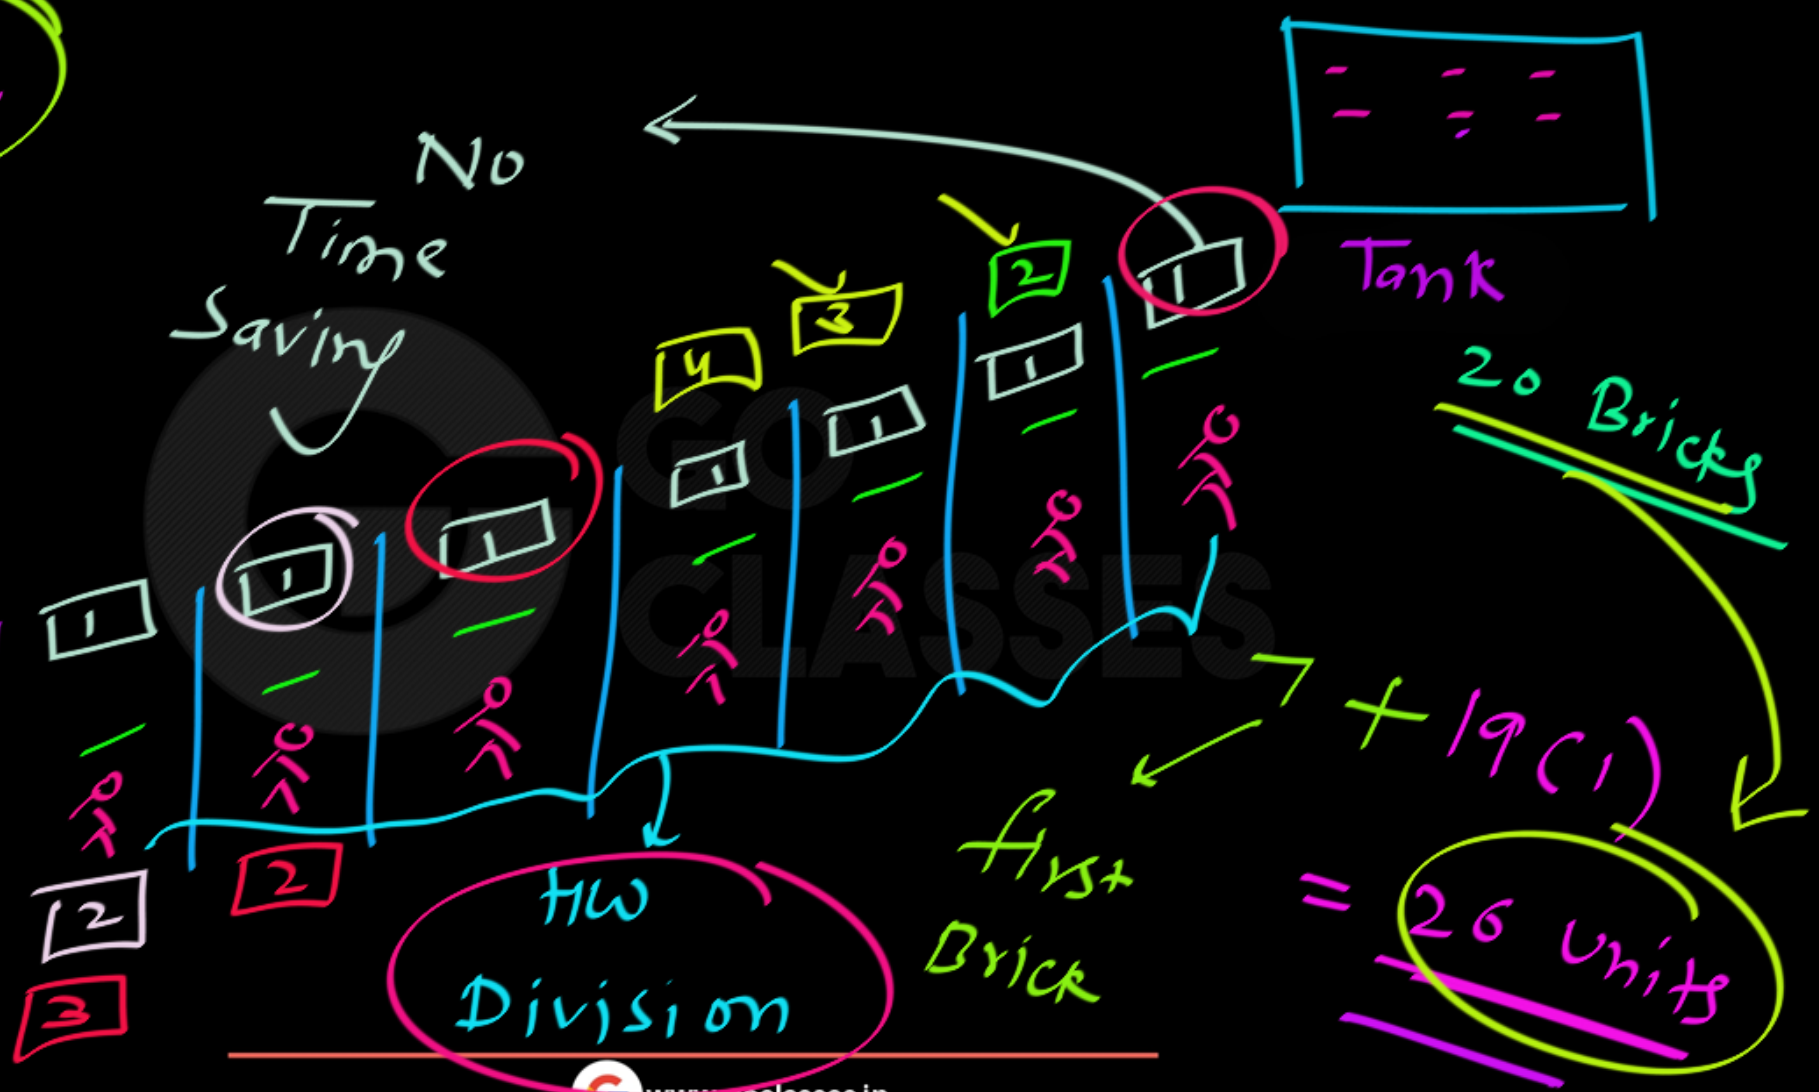 No
Time
Saving
Tank
20 Bricks
4
3
2
1
1
1
1
1
1
1
2
2
3
HW
Division
7 + 19(1)
first
Brick
= 26 units
GO
CLASSES